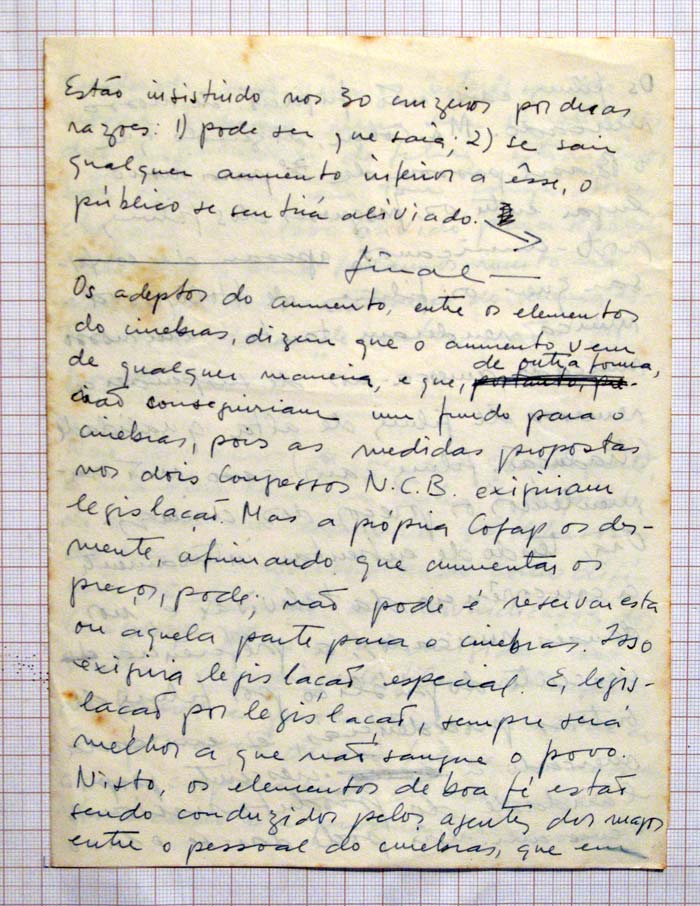 Estão insistindo nos 30 cruzeiros por duas
razões: 1) pode ser que saia; 2) se sair
qualquer aumento inferior a êsse, o
público se sentirá aliviado.
final
Os adeptos do aumento, entre os elementos
do cinebras, dizem que o aumento vem
de qualquer maneira, e que, de outra forma,
não conseguiriam um fundo para o
cinebras, pois as medidas propostas
nos dois Congressos N.C.B. exigiriam
legislação. Mas a própria Cofap os des-
mente, afirmando que aumentar os
preços, pode; não pode é reservar esta
ou aquela parte para o cinebras. Isso
exigiria legislação especial. E, legis-
lação por legislação, sempre será
melhor a que não sangue o povo.
Nisto, os elementos de boa fé estão
sendo conduzidos pelos agentes dos majors
entre o pessoal do cinebras, que em